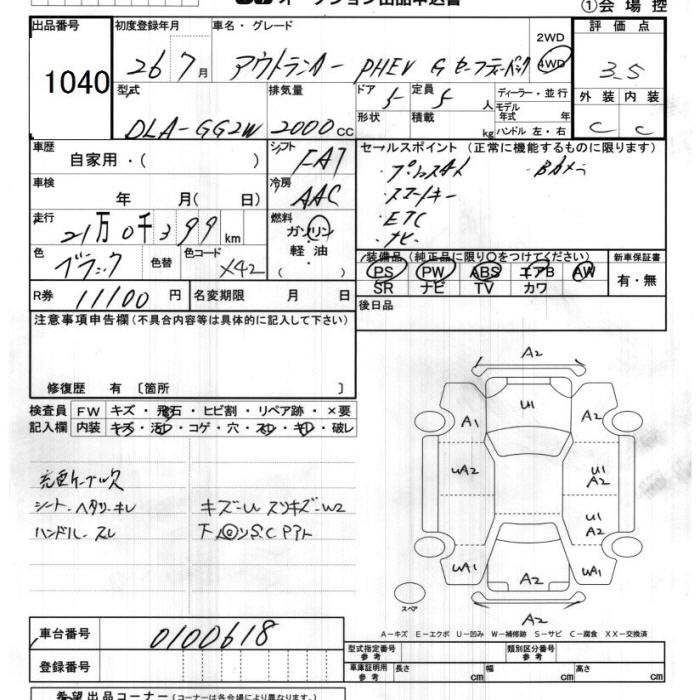 オークション出品申込書
①会場控
出品番号 初度登録年月 車名・グレード 評価点
1040 26年7月 アウトランダー PHEV G セーフティーパック 2WD 4WD 3.5
型式 排気量 ドア 定員 ディーラー・並行 外装 内装
DLA-GG2W 2000cc 5 5人 モデル年式 年 C C
形状 積載 kg ハンドル 左・右
車歴 シフト セールスポイント (正常に機能するものに限ります)
自家用・( ) FAT
・スマートキー
・ETC
・ナビ
車検 冷房
年 月( 日) AAC
走行 燃料
21万0千399km ガソリン
軽油
( )
色 色替 色コード
ブラック X42
装備品(純正品に限り○をつけてください) 新車保証書
PS PW ABS エアB AW 有・無
SR ナビ TV カワ
R券 11100円 名変期限 月 日 後日品
注意事項申告欄(不具合内容等は具体的に記入して下さい)
修復歴 有 〔箇所 〕
検査員 FW キズ・飛石・ヒビ割・リペア跡・×要
記入欄 内装 キズ・汚レ・コゲ・穴・スレ・キレ・破レ
シート ヘタリ・キレ キズ-U スリキズ-W2
ハンドル-スレ
A2
U1
A1 A2
UA2 U1 A2
U1 A2
UA1 UA1
A2
スペア A2
A-キズ E-エクボ U-凹み W-補修跡 S-サビ C-腐食 XX-交換済
車台番号 0100618
登録番号
型式指定番号 参考 類別区分番号 参考
車庫証明用 参考 長さ cm 幅 cm 高さ cm
希望出品コーナー(コーナーは各会場により異なります。)